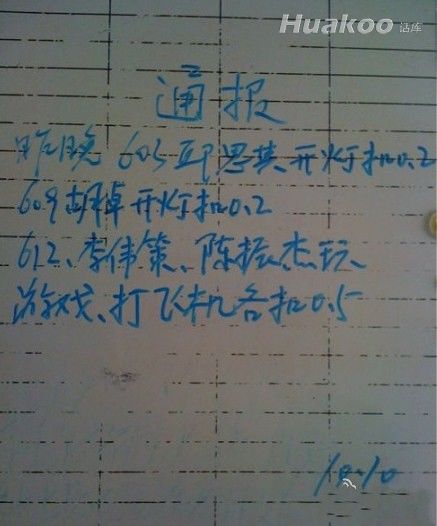 Huakoo 话库
通报
昨晚 603 邱思其开灯扣0.2
609 胡卓开灯扣0.2
612、李伟策、陈振杰玩
游戏、打飞机各扣0.5
10.10